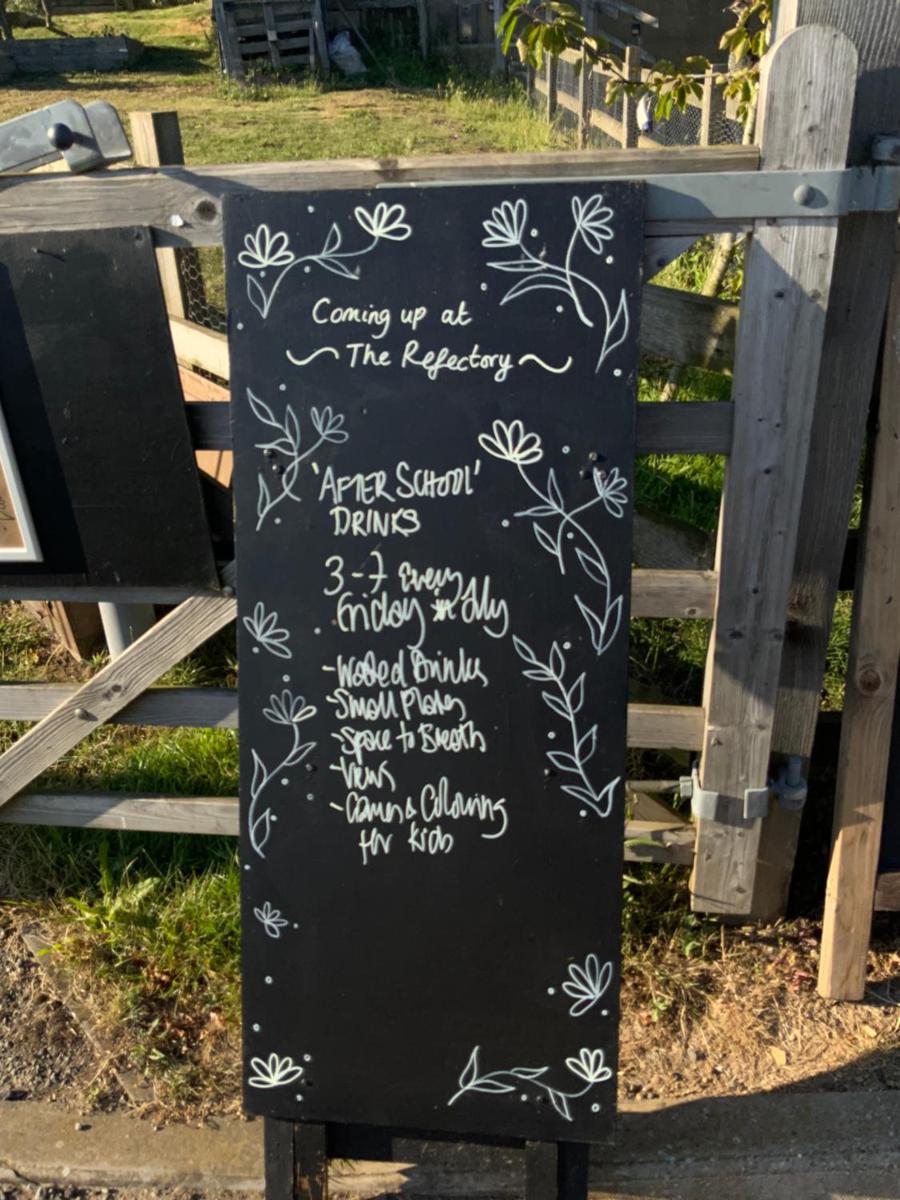 Coming up at
~ The Refectory ~
'AFTER SCHOOL'
DRINKS
3-7 Every
Friday in July
- Drinks
- Small Plates
- Space to Breath
- Views
- Games & Colouring
for kids